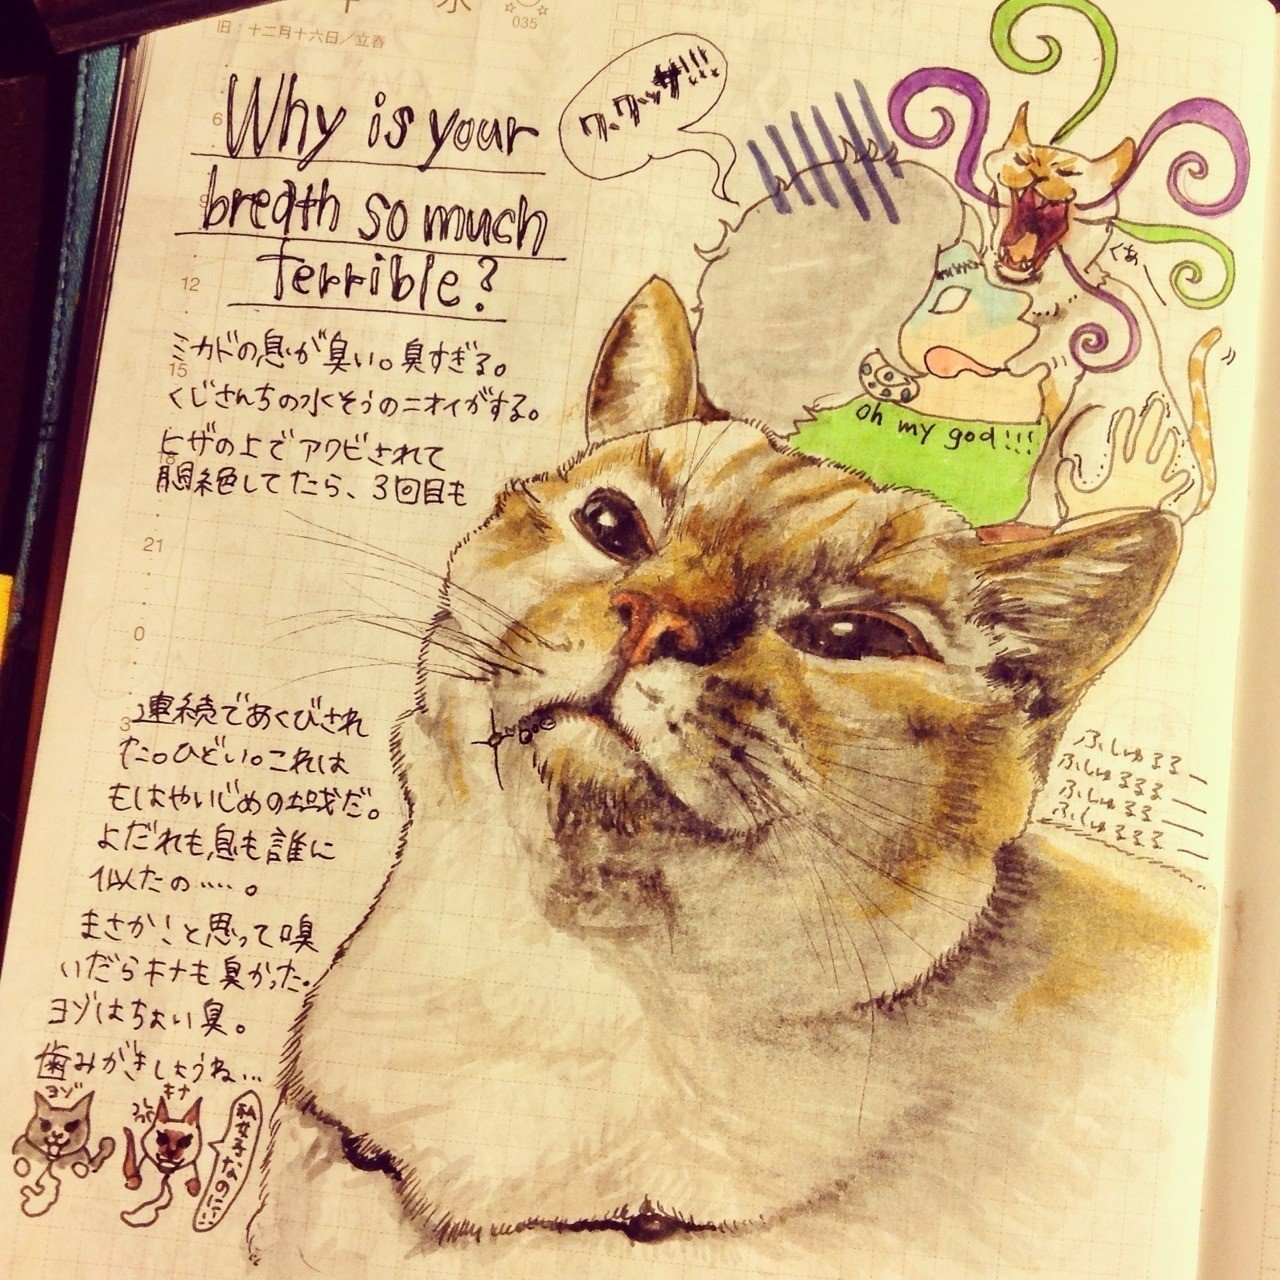 035
旧：十二月十六日／立春
Why is your
breath so much
terrible?
ワ、ワッサ!!!
くあー
oh my god!!!
6
12
15
21
0
3
ミカドの息が臭い。臭すぎる。
くじさんちの水そうのニオイがする。
ヒザの上でアクビされて
悶絶してたら、3回目も
連続であくびされ
た。ひどい。これは
もはやいじめの域だ。
よだれも息も誰に
似たの……。
まさか！と思って嗅
いだらキナも臭かった。
ヨゾはちょい臭。
歯みがきしようね…
ヨゾ
キナ
私女子なのに…
ふしゅるるー
ふしゅるるるー
ふしゅるるー
ふしゅるるるー